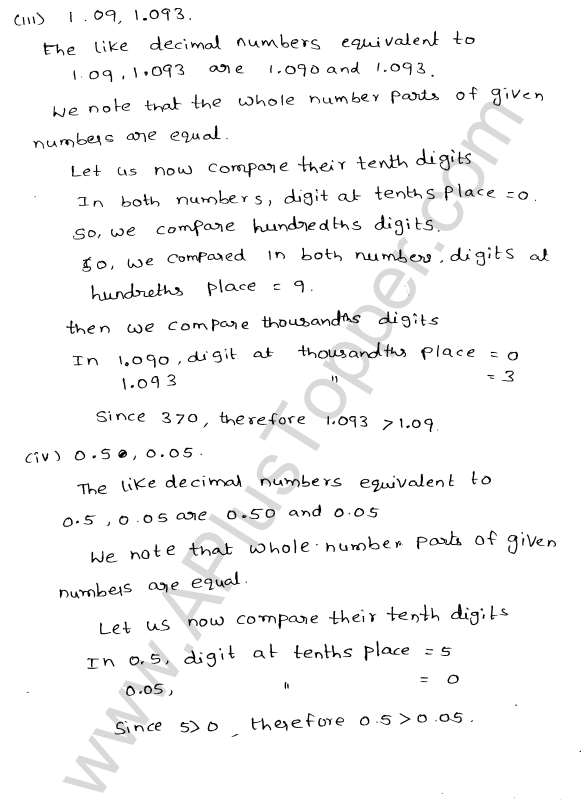 (iii) 1.09, 1.093.
the like decimal numbers equivalent to
1.09, 1.093 are 1.090 and 1.093.
We note that the whole number parts of given
numbers are equal.
Let us now compare their tenth digits
In both numbers, digit at tenths place = 0.
So, we compare hundredths digits.
So, we compared in both numbers, digits at
hundreths place = 9.
then we compare thousandths digits
In 1.090, digit at thousandths place = 0
1.093 " = 3
Since 370, therefore 1.093 > 1.09.
(iv) 0.5, 0.05.
The like decimal numbers equivalent to
0.5, 0.05 are 0.50 and 0.05
We note that whole number parts of given
numbers are equal.
Let us now compare their tenth digits
In 0.5, digit at tenths place = 5
0.05, " = 0
Since 5>0, therefore 0.5 > 0.05.
www.APlusTopper.com